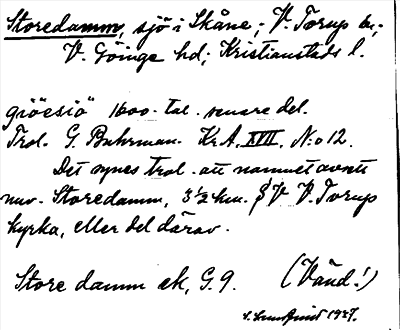 Storedamm, sjö i Skåne; V. Torup sn;
V. Göinge hd; Kristianstads l.
giöesiö 1600-tal. senare del.
Trol. G. Buhrman. Kr.A. XVII, N:o 12.
Det synes trol. att namnet avsett
nuv. Storedamm, 3 1/2 km. V V. Torup
kyrka, eller del därav.
Store damm ek, G. 9. (Vänd!)
1927.